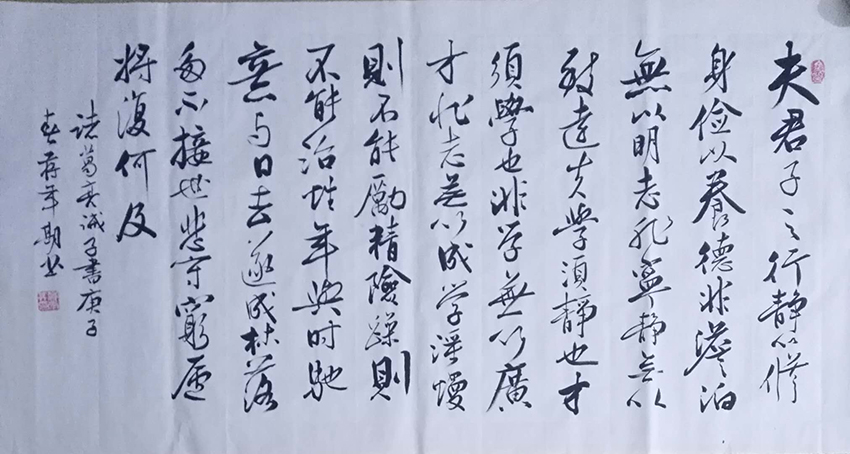 夫君子之行静以修
身俭以養德非澹泊
無以明志非寧静無以
致遠夫学須靜也才
須學也非学無以廣
才非志無以成学淫慢
則不能勵精險躁則
不能治性年與时馳
意与日去遂成枯落
多不接世悲守窮廬
将復何及
诸葛亮诫子書庚子
春